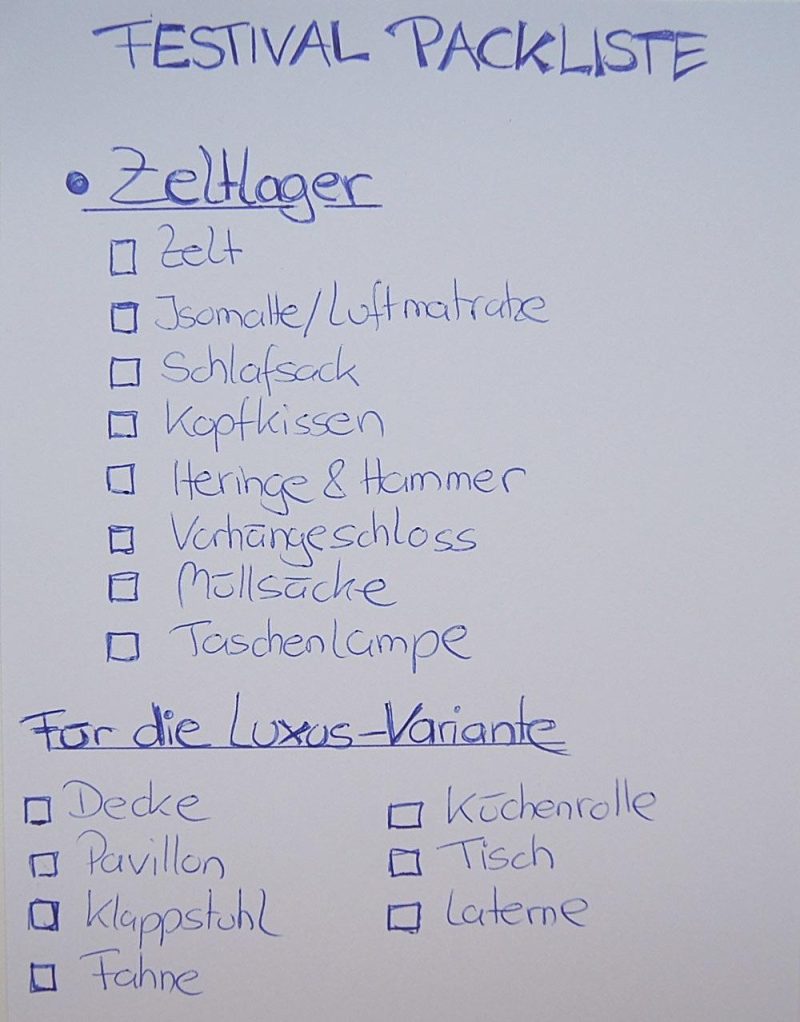 FESTIVAL PACKLISTE
• Zeltlager
☐ Zelt
☐ Isomatte/Luftmatratze
☐ Schlafsack
☐ Kopfkissen
☐ Heringe & Hammer
☐ Vorhängeschloss
☐ Müllsäcke
☐ Taschenlampe
Für die Luxus-Variante
☐ Decke
☐ Pavillon
☐ Klappstuhl
☐ Fahne
☐ Küchenrolle
☐ Tisch
☐ Laterne